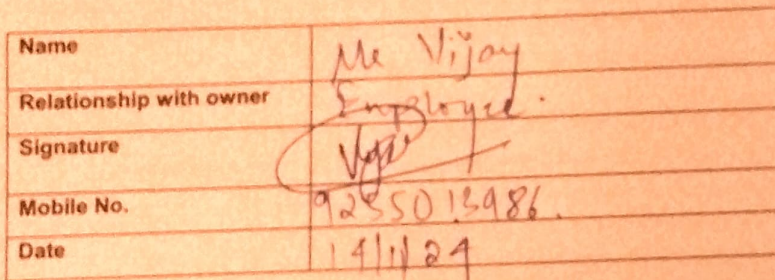 Name Mr Vijay
Relationship with owner Employee.
Signature Vijay
Mobile No. 9235013986.
Date 14/1/24